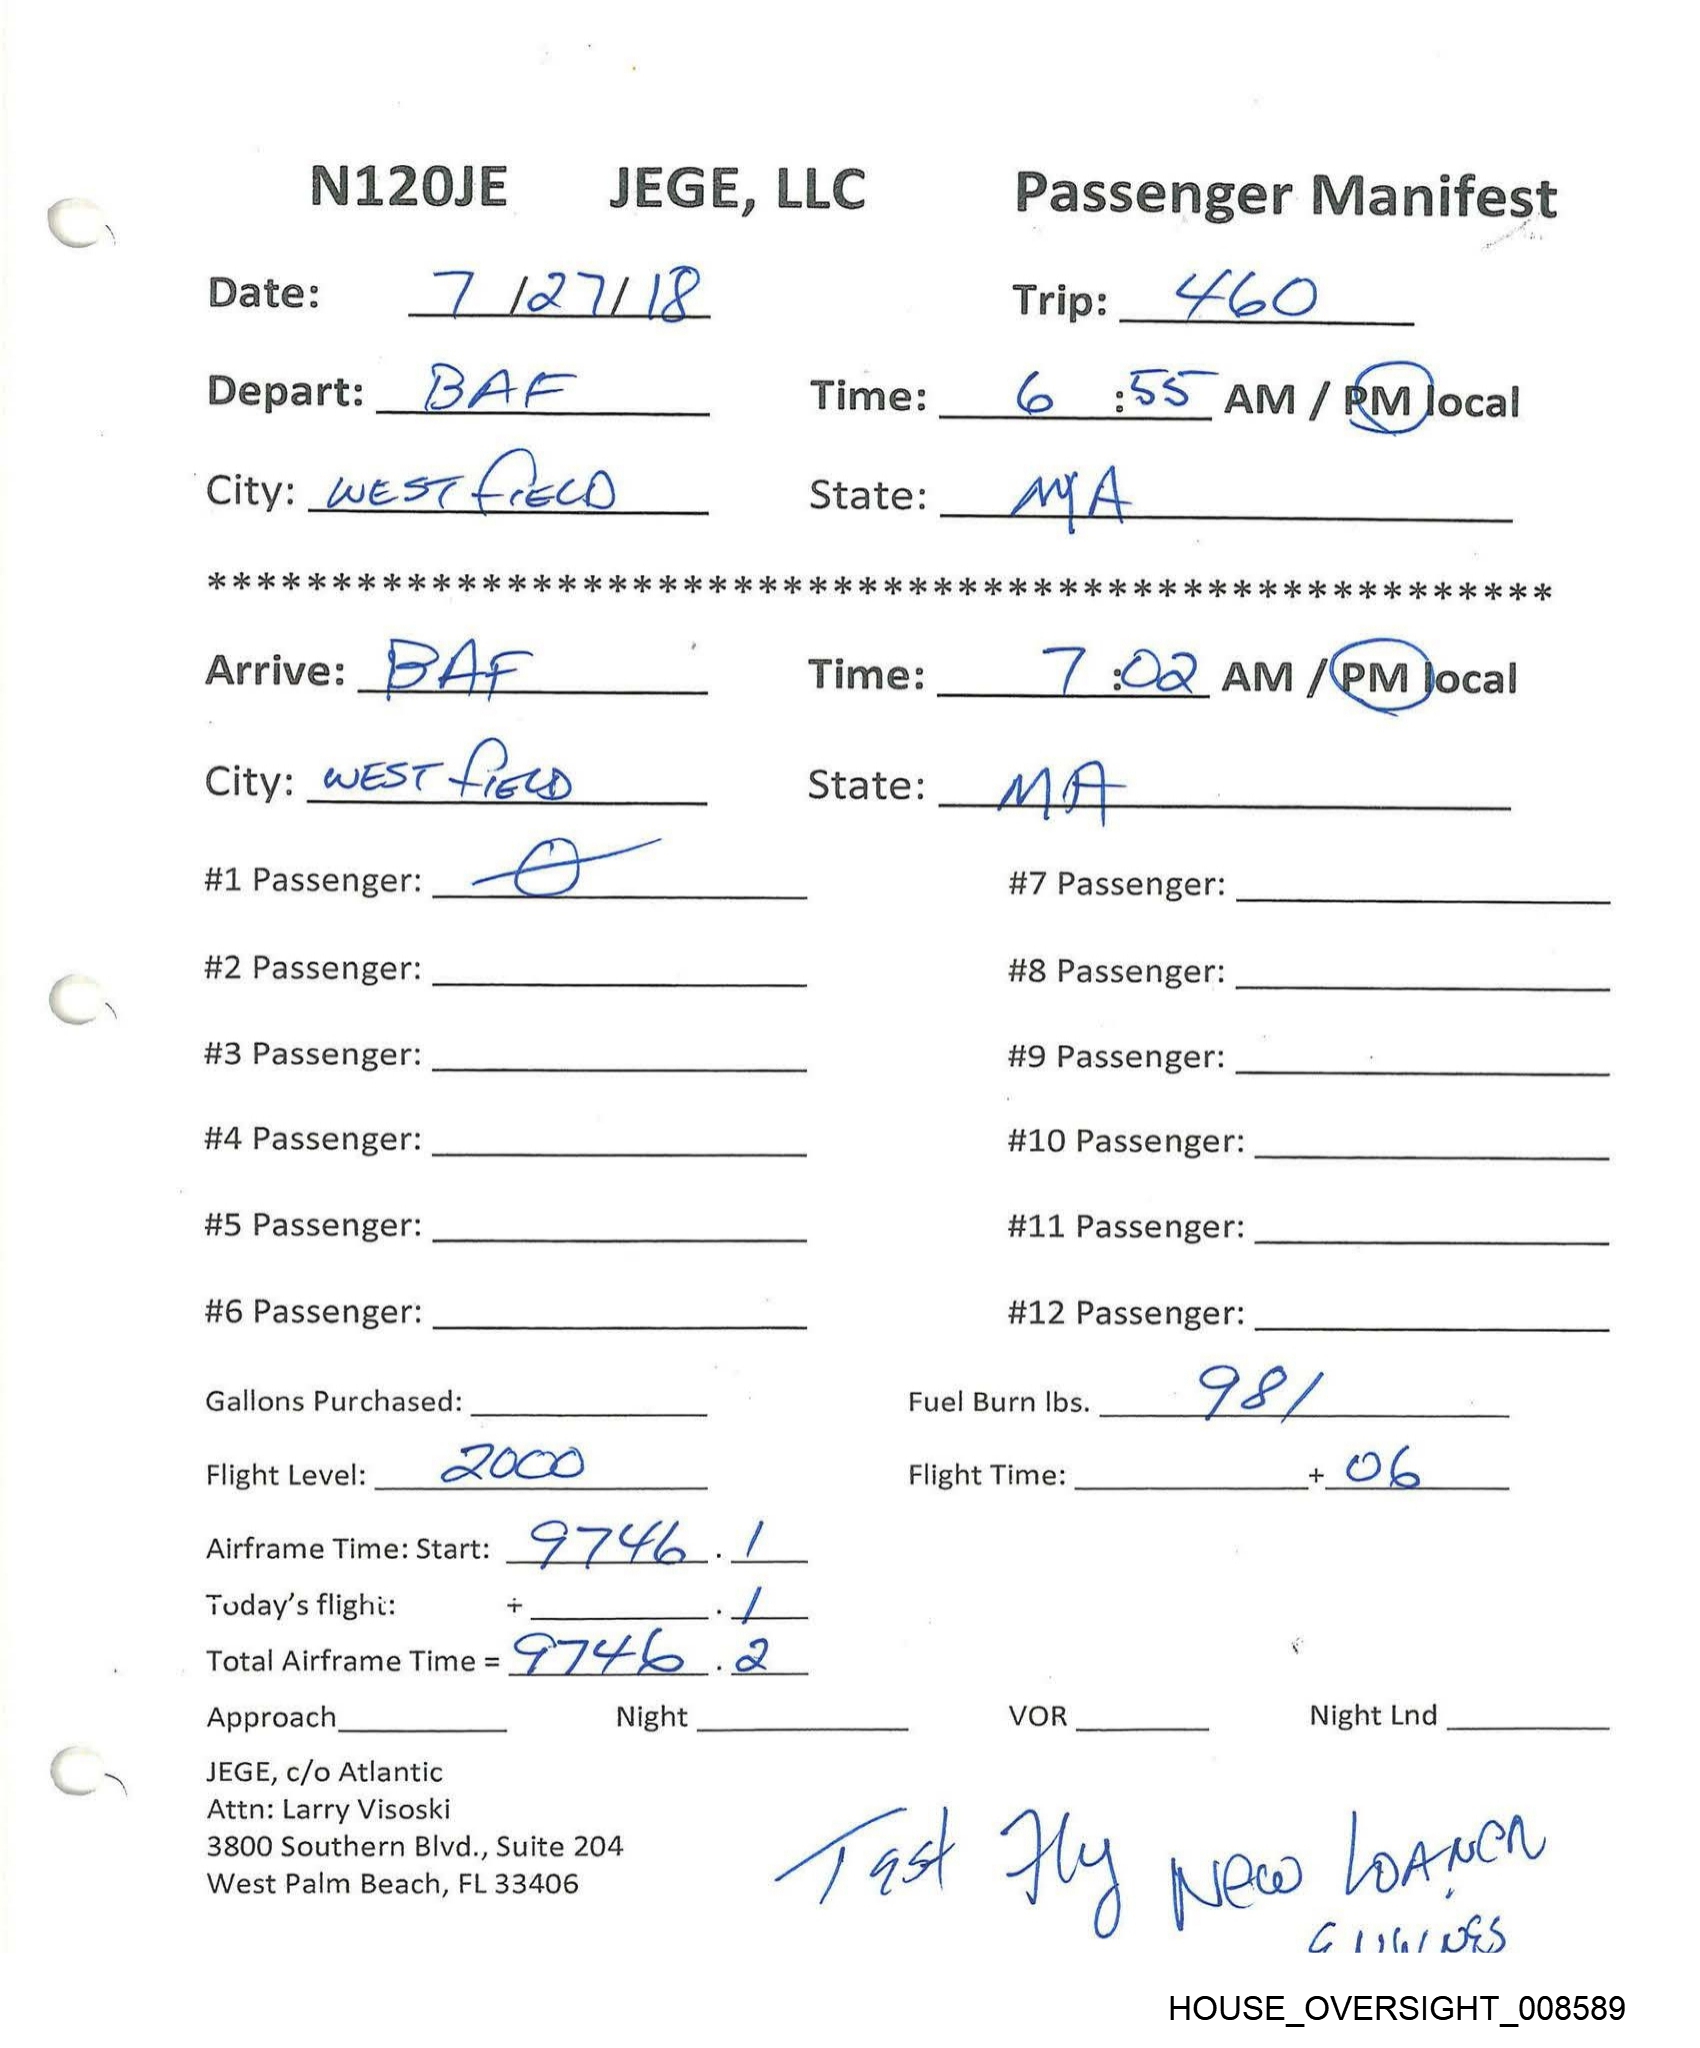 N120JE JEGE, LLC Passenger Manifest
Date: 7 /27/ 18 Trip: 460
Depart: BAF Time: 6 :55 AM / PM local
City: WESTfIELD State: MA
******************************************************
Arrive: BAF Time: 7 :02 AM / PM local
City: WESTfIELD State: MA
#1 Passenger: 0 #7 Passenger:
#2 Passenger: #8 Passenger:
#3 Passenger: #9 Passenger:
#4 Passenger: #10 Passenger:
#5 Passenger: #11 Passenger:
#6 Passenger: #12 Passenger:
Gallons Purchased: Fuel Burn lbs. 981
Flight Level: 2000 Flight Time: + 06
Airframe Time: Start: 9746 . 1
Today's flight: + . 1
Total Airframe Time = 9746 . 2
Approach Night VOR Night Lnd
JEGE, c/o Atlantic
Attn: Larry Visoski
3800 Southern Blvd., Suite 204
West Palm Beach, FL 33406
Test Fly New LOANER
ENGINES
HOUSE_OVERSIGHT_008589